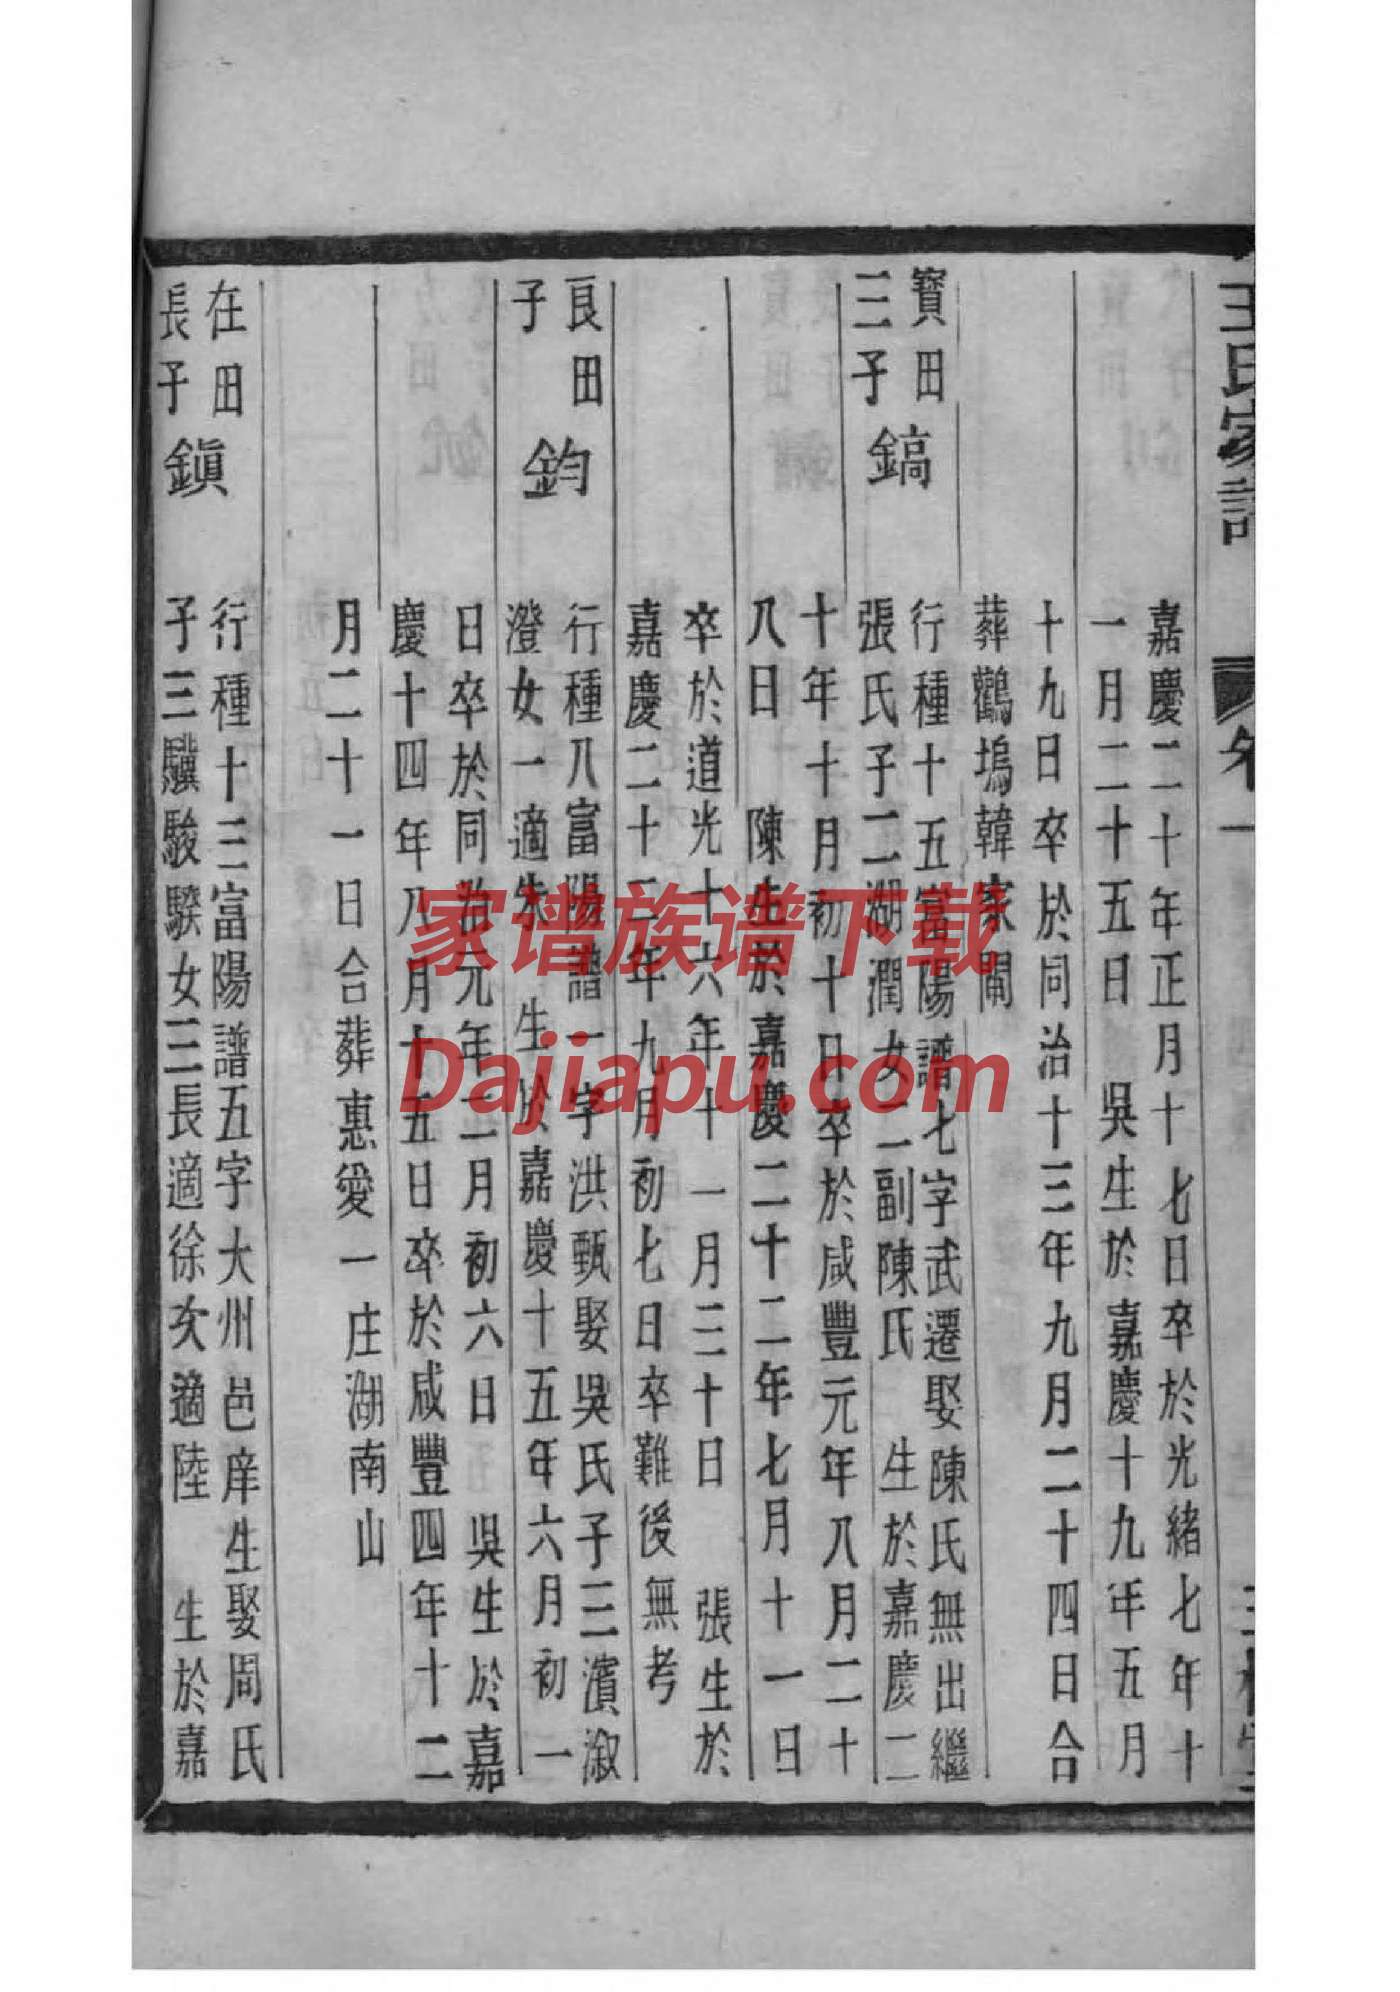 王氏家譜
卷一
嘉慶二十年正月十七日卒於光緒七年十
一月二十五日 吳生於嘉慶十九年五月
十九日卒於同治十三年九月二十四日合
葬鸛塢韓家閘
寶田
三子
鎬
行種十五富陽譜七字武遷娶陳氏無出繼
張氏子二湖潤女二副陳氏 生於嘉慶二
十年十月初十日卒於咸豐元年八月二十
八日 陳生於嘉慶二十二年七月十一日
卒於道光十六年十一月三十日 張生於
嘉慶二十二年九月初七日卒難後無考
良田
子
鈞
行種八富陽譜一字洪甄娶吳氏子三濱淑
澄女一適朱 生於嘉慶十五年六月初一
日卒於同治元年二月初六日 吳生於嘉
慶十四年八月十五日卒於咸豐四年十二
月二十一日合葬惠愛一庄湖南山
在田
長子
鎮
行種十三富陽譜五字大州邑庠生娶周氏
子三驥駿騤女三長適徐次適陸 生於嘉
家谱族谱下载
Dajiapu.com